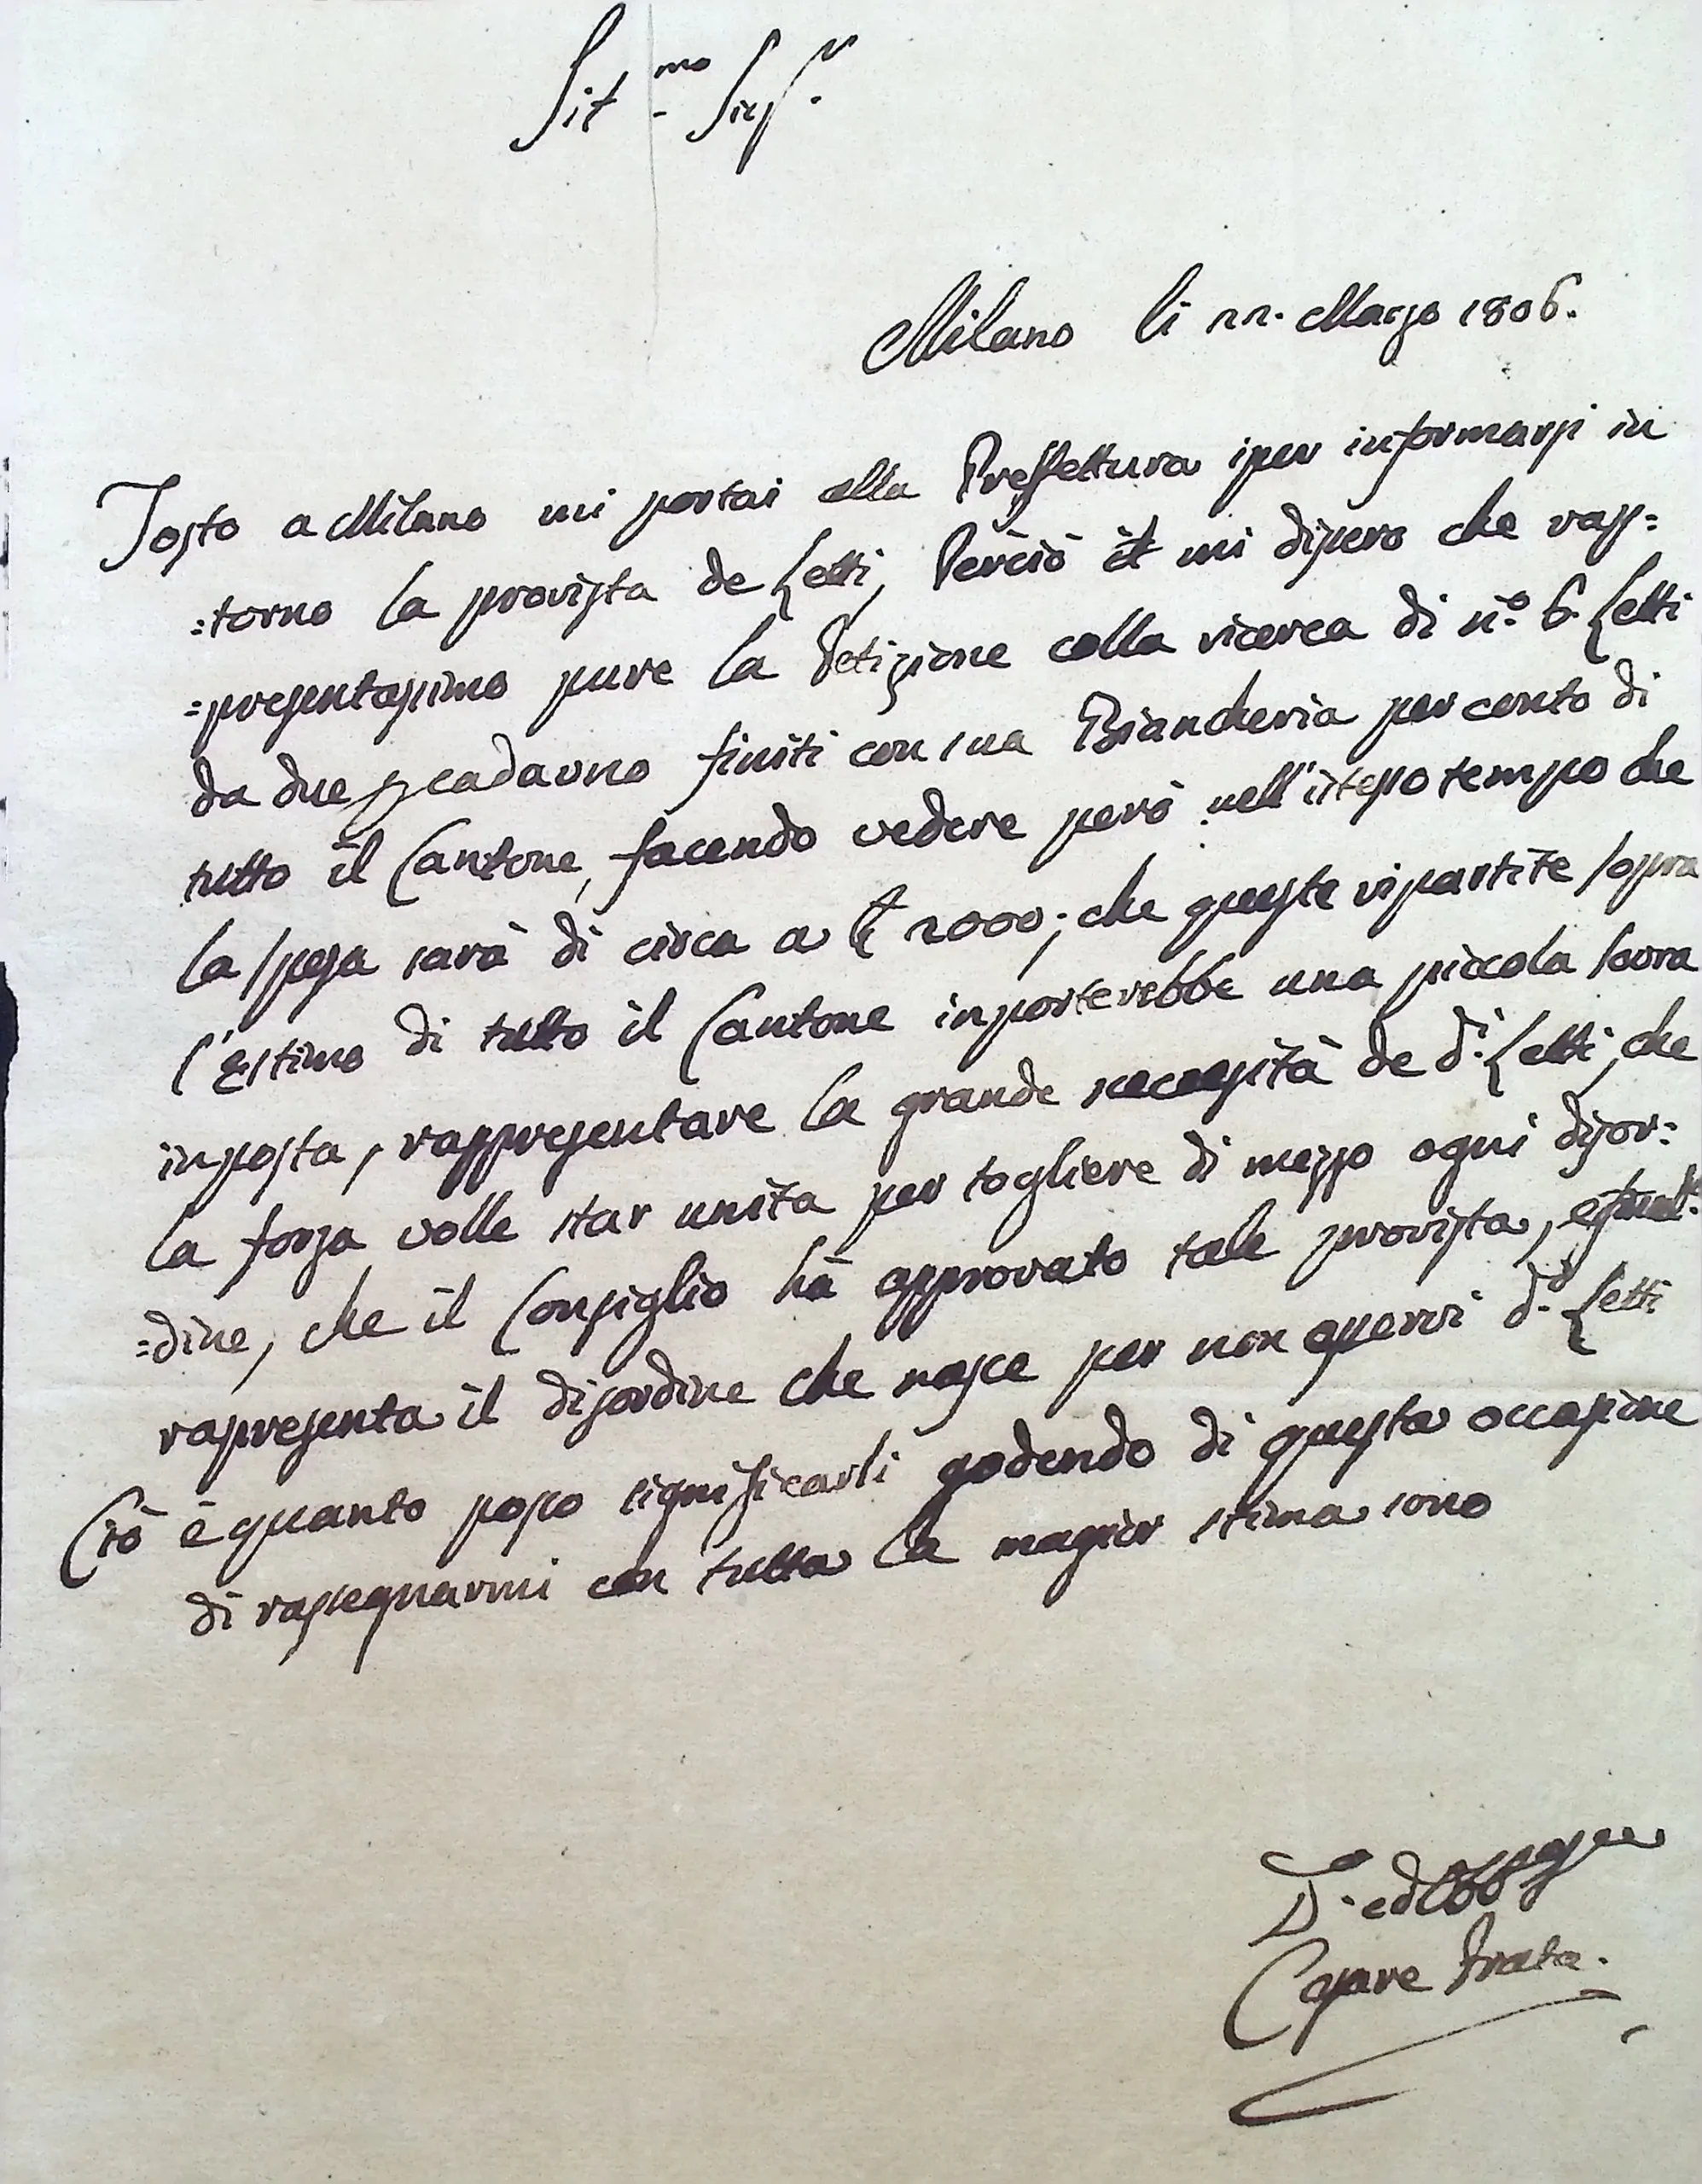 Sit.mo Sig.r
Milano li 22. Marzo 1806.
Tosto a Milano mi portai alla Preffettura per informarsi in
=torno la provista de Letti, Perciò mi dissero che rap=
=presentassimo pure la Petizione colla ricerca di n.o 6 Letti
da due p cadauno finiti con sua Biancheria per conto di
tutto il Cantone, facendo vedere però nell'istesso tempo che
la spesa sarà di circa a £ 2000; che queste ripartite sopra
l'Estimo di tutto il Cantone inporterebbe una piccola sovra
inposta, rappresentare la grande necessità de d.i Letti, che
la forza volle star unita per togliere di mezzo ogni disor=
=dine, che il Consiglio hà approvato tale provista,
rapresenta il disordine che nasce per non esservi d.i Letti
Ciò è quanto posso significarli godendo di questa occasione
di rassegnarmi con tutta la magior stima sono
D. ed Obb
Cesare Prata.